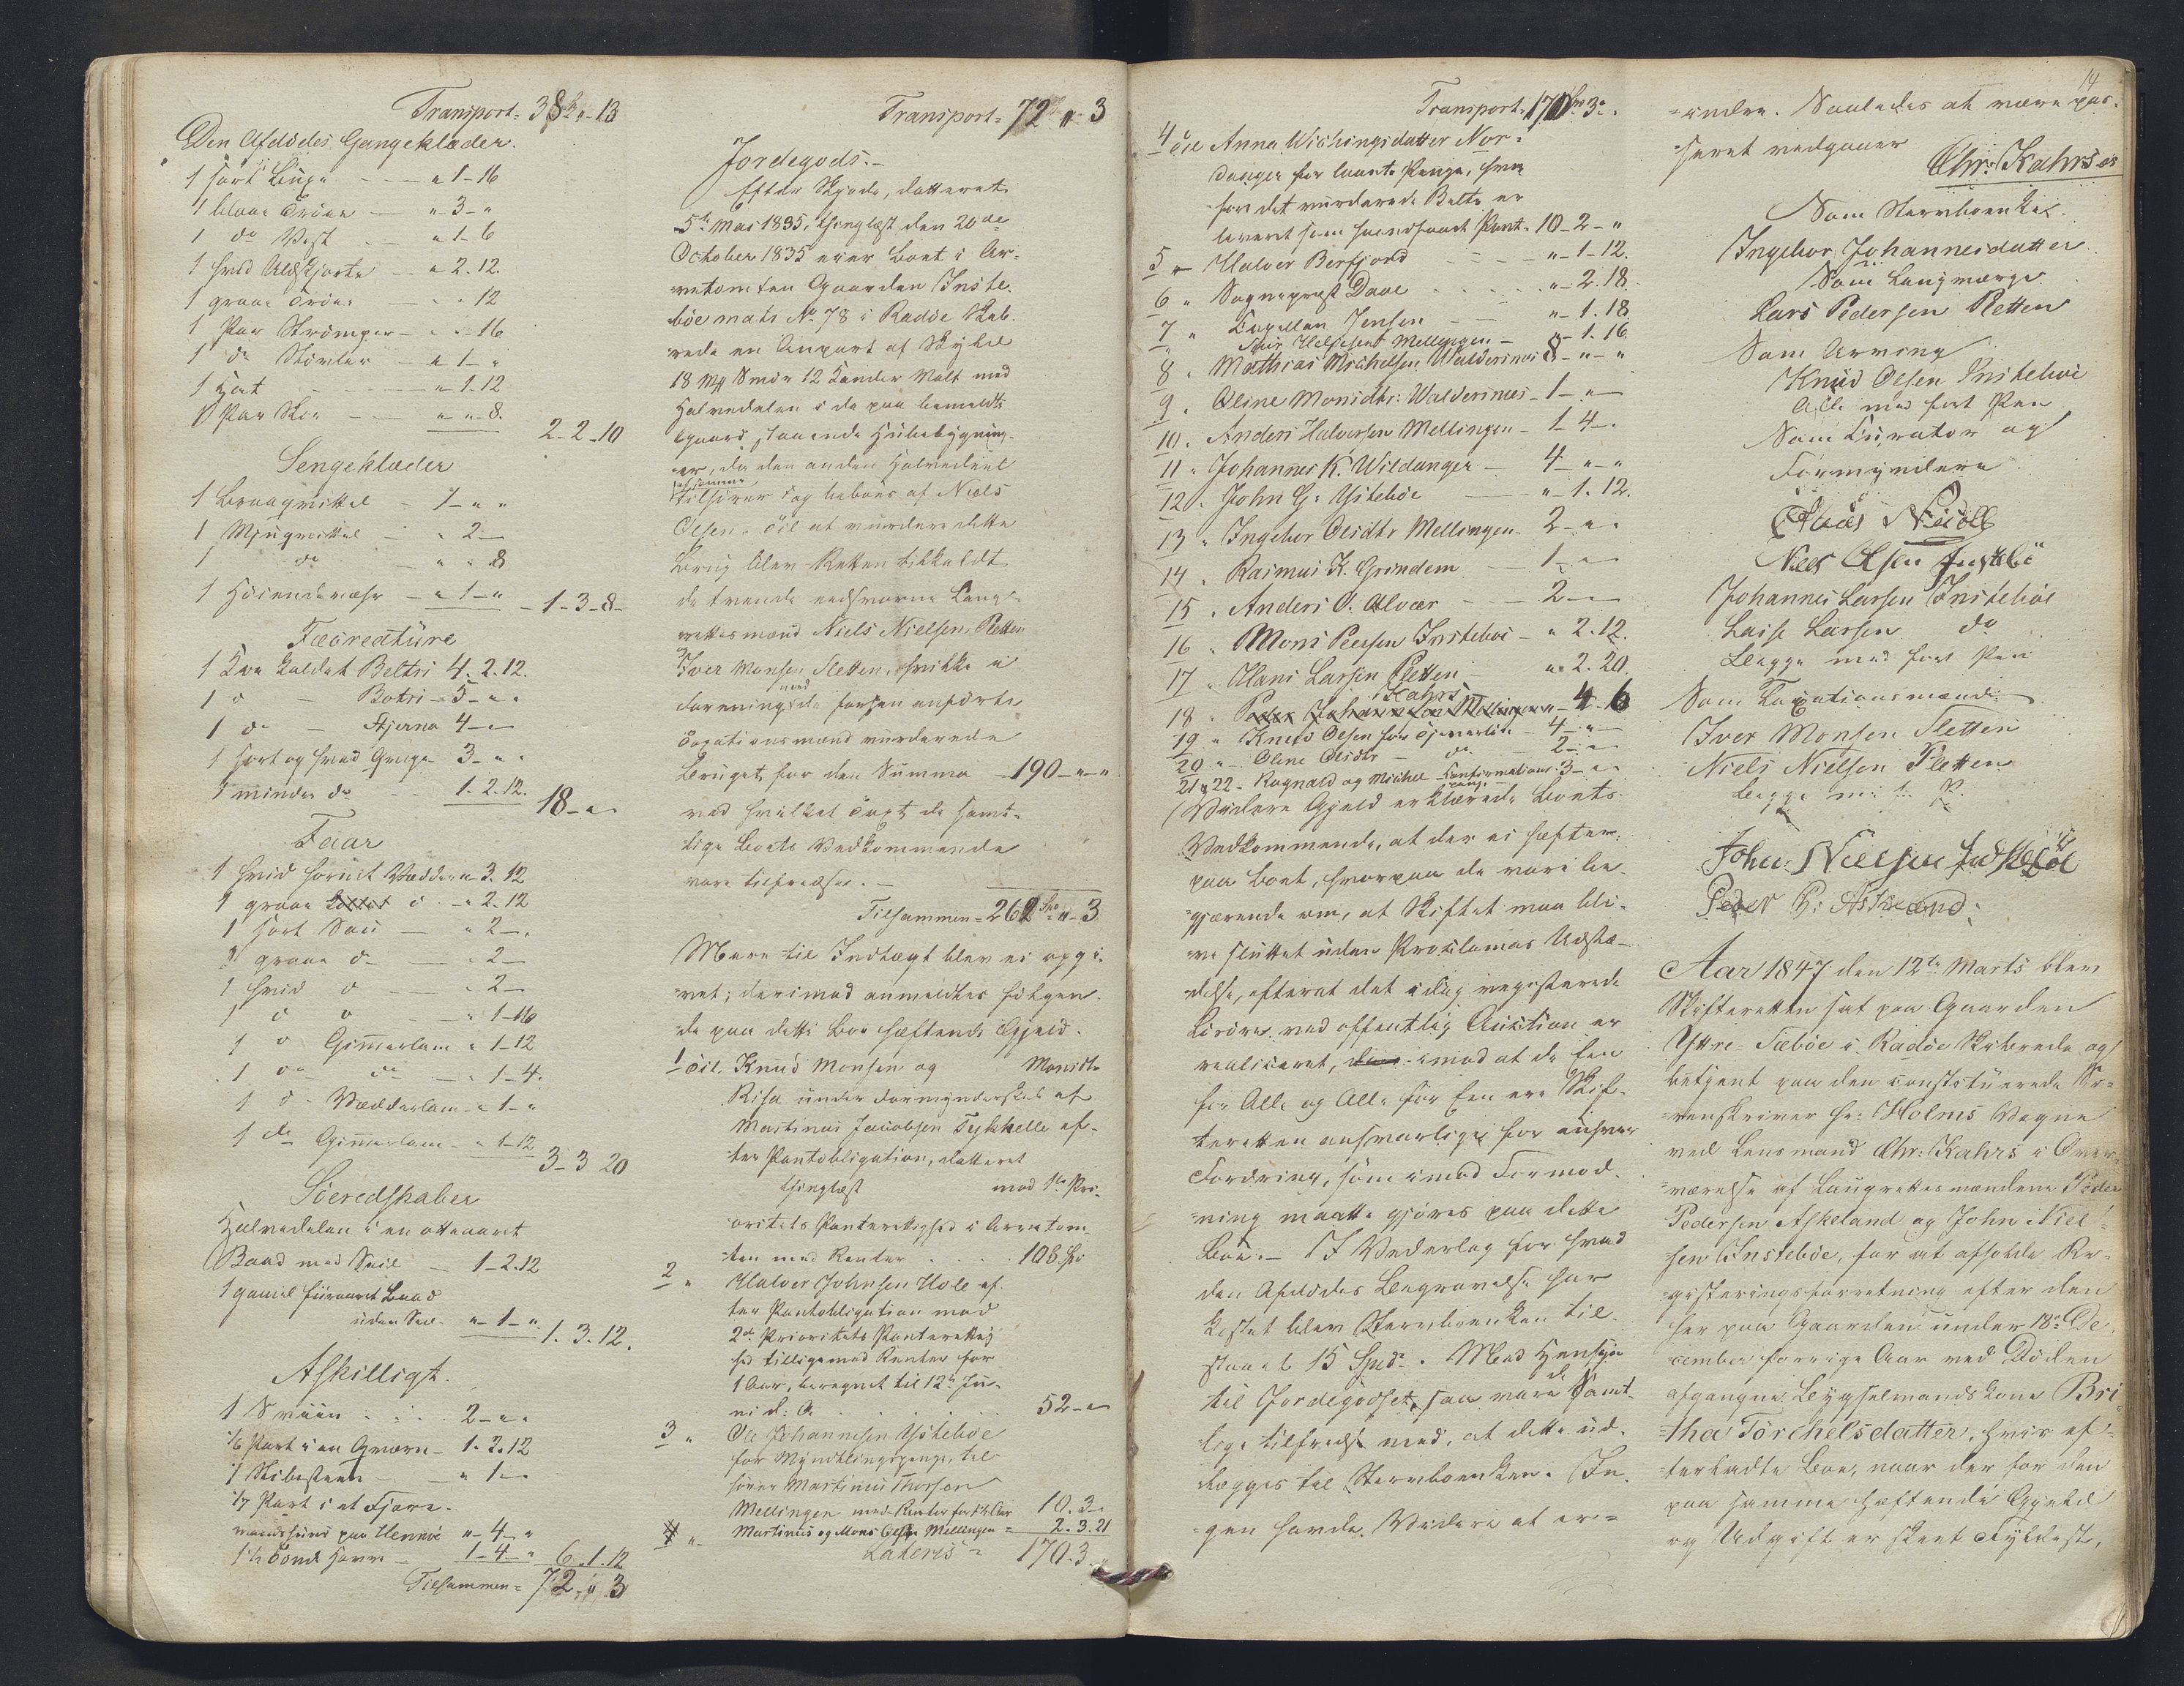 Transport = 38 " 13
Den Afdödes Gangeklæder.
1 sort Buxe — " 1-16
1 blaae Tröie — " 3 - "
1 do Vest — " 1-6
1 hvid Uldskjorte — " 2.12.
1 graae Tröie — " " 12
1 Par Strömper — " " 16
1 do Støvler — " 1 - "
1 Hat — " 1.12
1 Par Skoe — " " 8.
2 - 2 - 10
Sengeklæder
1 - " "
1 — " 2 —
1 do — " " 8
1 — " 1 - " — 1-3-8-
Fæcreatüre
1 Koe kaldet Beltri 4. 2. 12.
1 d — Botri — 5 - " "
1 do — Stjerna 4 - "
1 sort og hvid Qvige 3 - " "
1 mindre do 1. 2. 12.
18 - " -
Faar
1 hvid hornet Vædder " 3. 12
1 graae d - " 2. 12
1 sort Sau — " 2 - "
1 graae d — " 2 —
1 hvid d — " 2 —
1 d d — " 1-16
1 d Gimmerlam " 1-12
1 do do — " 1-4.
1 d Vædderlam " 1 - "
1 do Gimmerlam " 1-12
3 - 3 20
Söeredskaber
Halvedelen i en ottearet
Baad med Seil — 1-2.12
1 gamel firearet Baad
uden Seil " 1 - " 1. 3. 12.
Afskilligt.
1 Sviin . . . 2 - " "
1/6 Part i en Qværn — 1. 2. 12
1 Slibesteen — " 1 —
1/7 Part i et
paa Hennöe " 4 - "
1 1/2 Tønde Havre — 1-4 - " 6. 1. 12
Tilsammen = 72 " 3

Transport = 72 " 3
Jordegods. —
Efter Skjøde, datteret
5te Mai 1835, thinglæst den 20de
October 1835 eier Boet i Ar-
vetomten Gaarden Inste-
böe matr. No 78 i Radöe Skib-
rede en Anpart af Skyld
18 Mk Smör 12 Kander Malt med
Halvedelen i de paa bemeldte
Gaard staaende Husebygning-
er, da den anden Halvedeel
af samme
tilhører og beboes af Niels
Olsen. Til at vurdere dette
Brug blev Retten tilkaldt
de tvende eedsvorne Laug-
rettesmænd Niels Nielsen Sletten
og
Iver Monsen Sletten, hvilke i
med
Forening de forhen anførte
Taxationsmænd vurderede
Bruget for den Summa — 190 - " - "
ved hvilket Taxt de samt-
lige Boets Vedkommende
vare tilfredse. —
Tilsammen = 262 Spd " 3
Mere til Indtægt blev ei opgi-
vet; derimod anmeldtes følgen-
de paa dette Boe hæftende Gjeld.
1 til Knud Monsen og Monsdtr
Risa under Formynderskab af
Martinus Jacobsen Tykhelle ef-
ter Pantobligation, datteret
thinglæst med 1ste Pri-
oritets Panterettighed i Arvetom-
ten med Renter . . . 108 Spd
2 " Halvor Johnsen Hole ef-
ter Pantobligation med
2den Prioritets Panterettig-
hed tilligemed Renter for
1 Aar, beregnet til 12te Ju-
ni d: A. . . . 52 - " -
3 " Ole Johannesen Ystebøe
for Myndtlingspenge, til-
hører Martinus Thorsen
Mellingen med Renter for 1/2 Aar 10. 3 "
" Martinus og Mons Mellingen = 2. 3. 21
Lateris = 170. 3 "

Transport = 170 Spd 3 "
4 til Anna Wichingsdatter Nor-
danger for laante Penge, hvor-
for det vurderede Belte er
leveret som haandfaaet Pant — 10 - 2 - "
5 " Halvor Berfjord — " - 1-12.
6 " Sognepræst Daae . . . " - 2. 18.
7 " Capellan Jensen — " - 1. 18
Mellingen — " - 1. 16.
8 " Mathias Michelsen Walderines 8 - " - "
9 " Oline Monsdtr: Walderines — 1 - " —
10 " Anders Halvorsen Mellingen — 1-4 - "
11 " Johannes K. Wildanger — 4 - " - "
12 " John G: Ystebøe — " - 1. 12.
13 " Ingebor Olsdtr Mellingen 2 - " "
14 " Rasmus K. Grindem — 1 - " —
15 " Anders O. Alvær — 2 —
16 " Mons Peersen Insteböe — " 2. 12.
17 " Hans Larsen Sletten — " 2. 20.
Kahrs
18 " Peder Johannesen Mellingen " 4 6
19 " Knud Olsen for Tjeneste — 4 - " —
20 " Oline Olsdtr — do — 2 - " —
21 & 22 - Ragnald og Michel Confirmations- 3 - " "
penge
Videre Gjeld erklærede Boets
Vedkommende, at der ei hæfter
paa Boet, hvorpaa de vare be-
gjærende om, at Skiftet maa bli-
ve sluttet uden Proclamas Udstæ-
delse, efterat det idag registerede
Lösöre ved offentlig Auction er
realiceret, imod at de Een
for Alle og Alle for Een ere Skif-
teretten ansvarlige for enhver
Fordring, som imod Formod-
ning maatte gjöres paa dette
Boe. — I Vederlag for hvad
den Afdödes Begravelse har
kostet blev Stervboenken til-
staaet 15 Spdr. Med Hensyn
til Jordegodset, saa vare de Samt-
lige tilfredse med, at dette ud-
lægges til Stervboenken. In-
gen havde Videre at er-

14
indre. Saaledes at være pas-
seret vedgaaer
Chr: Kahrs
Som Stervboenke.
Ingebor Johannesdatter
Som Laugværge
Lars Pedersen Sletten
Som Arving
Knud Olsen Insteböe
Alle med ført Pen
Som Curator og
Formyndere

Niels Olsen Instebö
Johannes Larsen Insteböe
Lasse Larsen do
Begge med ført Pen
Som Taxationsmænd
Iver Monsen Sletten
Niels Nielsen Sletten
Begge m: f. P.
John Nielsen Insteböe
Peder P: Askeland

Aar 1847 den 12te Marts blev
Skifteretten sat paa Gaarden
Yttre-Sæböe i Radöe Skibrede og
betjent paa den constituerede So-
renskriver Hr: Holms Vegne
ved Lensmand Chr: Kahrs i Over-
værelse af Laugrettesmændene Peder
Pedersen Askeland og John Niel-
sen Insteböe, for at afholde Re-
gisteringsforretning efter den
her paa Gaarden under 18de De-
cember forrige Aar ved Döden
afgangne Bygselmandskone Bri-
tha Törchelsdatter, hvis ef-
terladte Boe, naar der for den
paa samme hæftende Gjeld
og Udgift er skeet Fyldest,